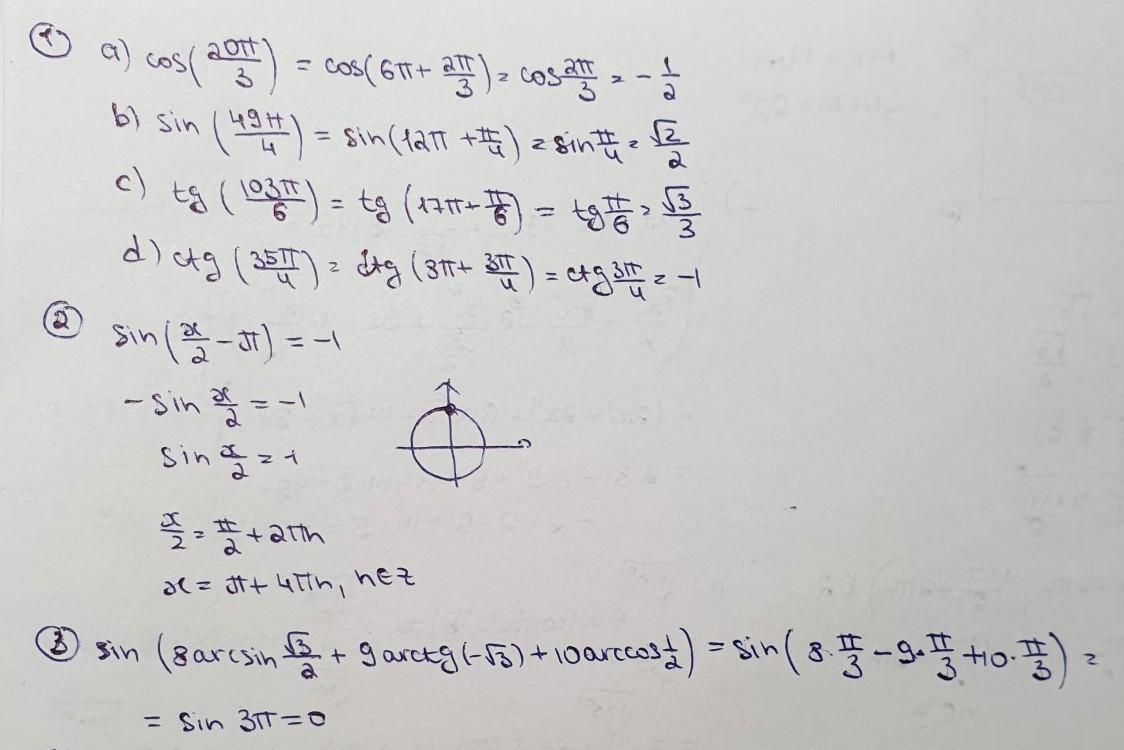 ① a) cos(20π/3) = cos(6π + 2π/3) = cos 2π/3 = -1/2
b) sin (49π/4) = sin(12π + π/4) = sin π/4 = √2/2
c) tg (103π/6) = tg (17π + π/6) = tg π/6 = √3/3
d) ctg (35π/4) = ctg (8π + 3π/4) = ctg 3π/4 = -1
② sin(x/2 - π) = -1
- sin x/2 = -1
sin x/2 = 1
x/2 = π/2 + 2πn
x = π + 4πn, n∈Z
③ sin (8arcsin √3/2 + 9arctg(-√3) + 10arccos 1/2) = sin(8·π/3 - 9·π/3 + 10·π/3) =
= sin 3π = 0